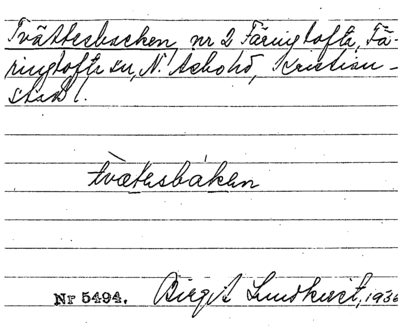 Tvättesbacken, nr 2 Färingtofta, Fä-
ringtofta sn, N. Åsbo hd, Kristian-
stads l.
tvætesbákan
Nr 5494. Birgit Lundkvist, 1936